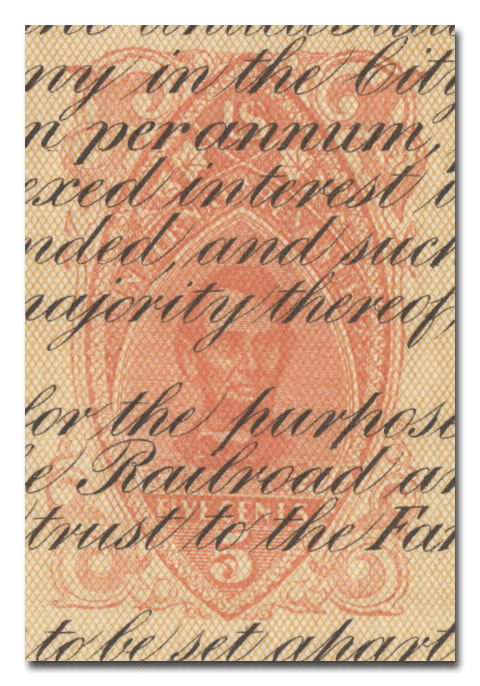 ny in the City
n per annum,
exed interest
nded, and such
majority thereof,
for the purpose
e Railroad an
trust to the Far
FIVE CENTS
5
to be set apart